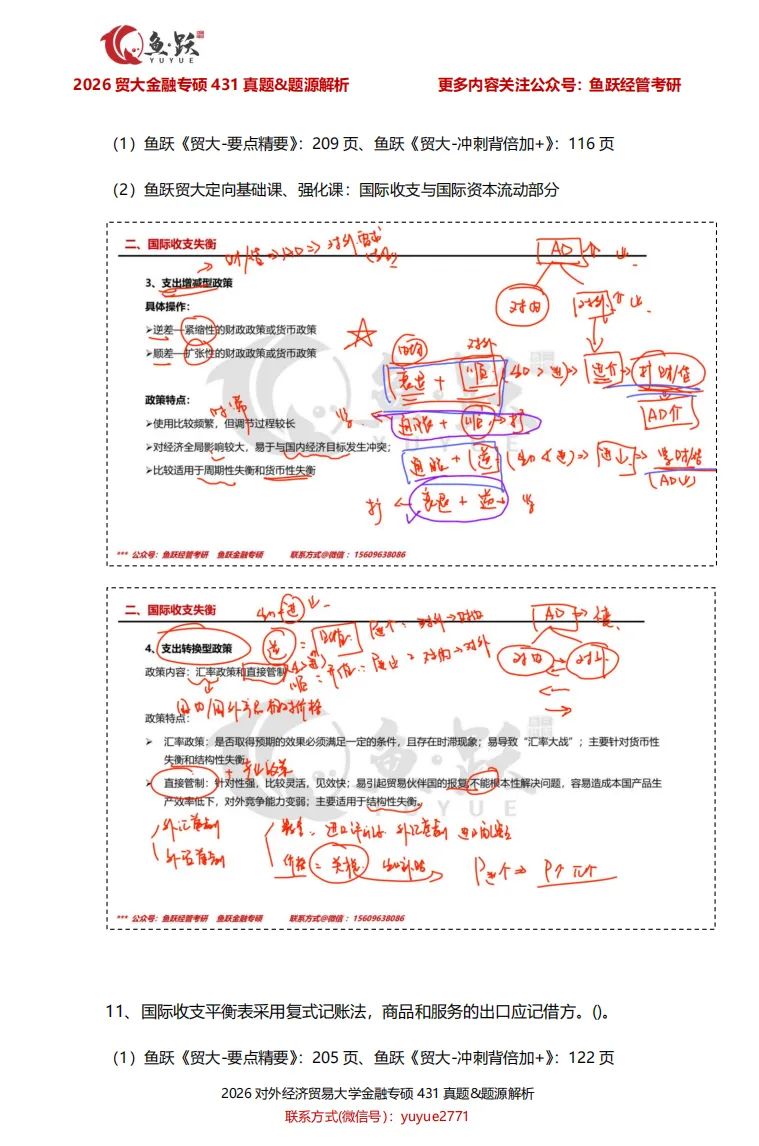 鱼·跃
YUYUE
2026 贸大金融专硕 431 真题&题源解析 更多内容关注公众号：鱼跃经管考研
（1）鱼跃《贸大-要点精要》：209 页、鱼跃《贸大-冲刺背倍加+》：116 页
（2）鱼跃贸大定向基础课、强化课：国际收支与国际资本流动部分
二、国际收支失衡
财/货⇒AD⇒对外需求
AD
对内
对外
3、支出增减型政策
具体操作：
➢逆差—紧缩性的财政政策或货币政策
➢顺差—扩张性的财政政策或货币政策
对内
对外
衰退 + 顺
AD↑
政策特点：
➢使用比较频繁，但调节过程较长
通胀 + 顺
➢对经济全局影响较大，易于与国内经济目标发生冲突；
通胀 + 逆
➢比较适用于周期性失衡和货币性失衡
(AD↓)
衰退 + 逆
*** 公众号：鱼跃经管考研 鱼跃金融专硕 联系方式@微信：15609638086
二、国际收支失衡
AD
对内
对外
4、支出转换型政策
政策内容：汇率政策和直接管制
政策特点：
➢ 汇率政策：是否取得预期的效果必须满足一定的条件，且存在时滞现象；易导致“汇率大战”；主要针对货币性
失衡和结构性失衡
➢ 直接管制：针对性强，比较灵活，见效快；易引起贸易伙伴国的报复；不能根本性解决问题，容易造成本国产品生
产效率低下，对外竞争能力变弱；主要适用于结构性失衡。
外汇管制
外贸管制
价格：关税
*** 公众号：鱼跃经管考研 鱼跃金融专硕 联系方式@微信：15609638086
11、国际收支平衡表采用复式记账法，商品和服务的出口应记借方。()。
（1）鱼跃《贸大-要点精要》：205 页、鱼跃《贸大-冲刺背倍加+》：122 页
2026 对外经济贸易大学金融专硕 431 真题&题源解析
联系方式(微信号)：yuyue2771